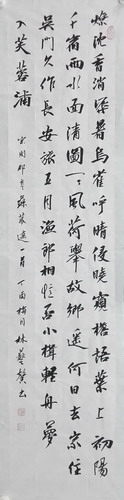 燎沈香消溽暑鳥雀呼晴侵曉窺檐語葉上初陽
干宿雨水面清圓一一風荷舉故鄉遥何日去家住
吴門久作長安旅五月漁郎相憶否小楫輕舟夢
入芙蓉浦
宋周邦彦蘇幕遮一首 丁酉梅月林書